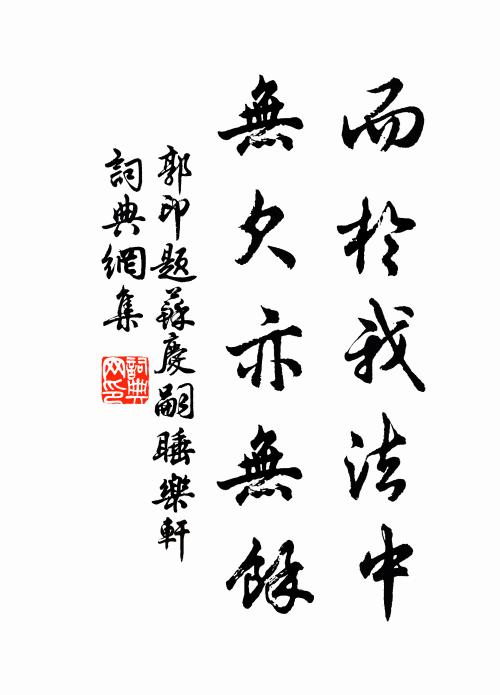 而於我法中
無欠亦無餘
郭印題蘇慶嗣睡樂軒
詞典網集
詞典網印